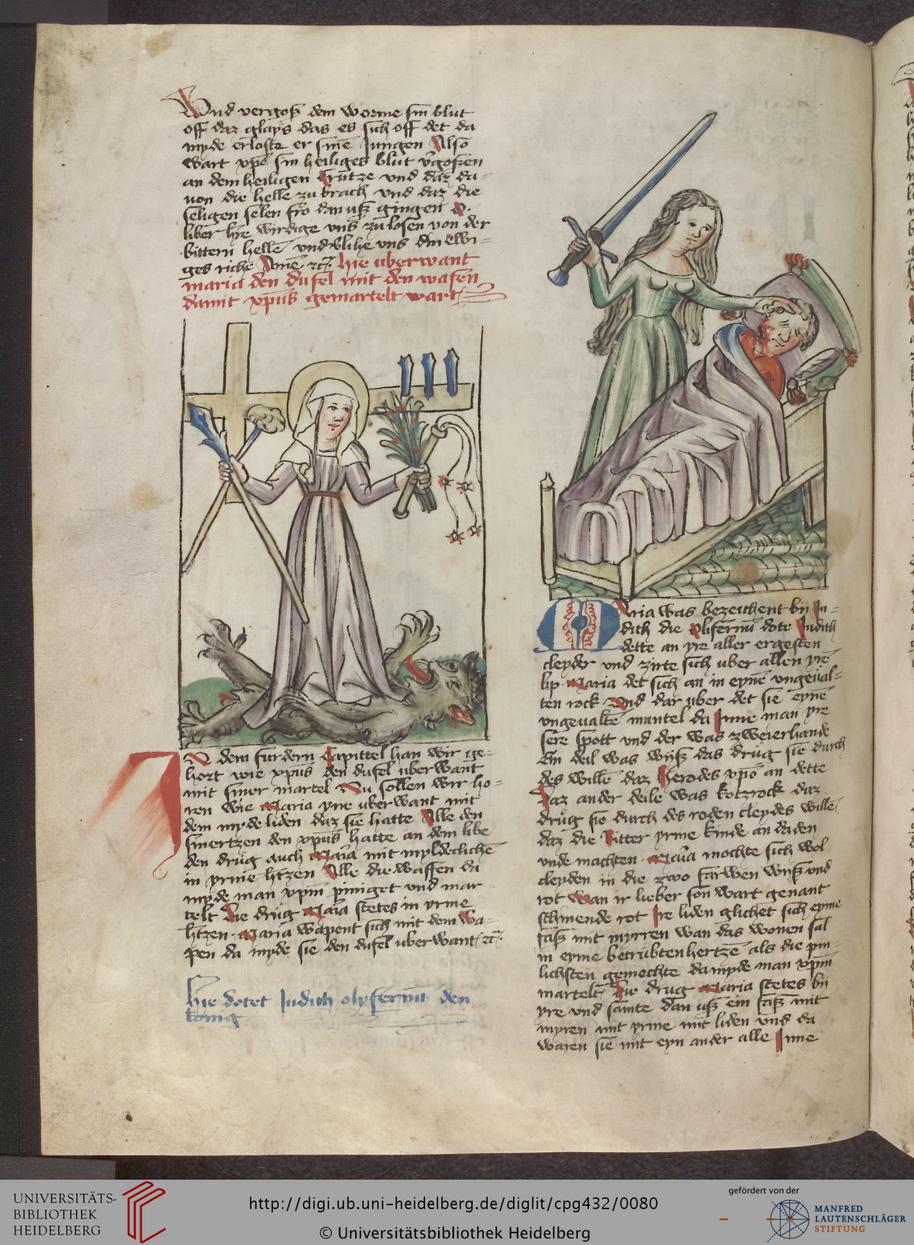 Und vergoß dem worme sin blut
off daz glaß das es sich off det da
myde erloste er sine Jungen Also
wart xpc sin heiliges blut v'goßen
an dem heiligen Crutze und daz da
von die helle zu brach und daz die
seligen selen fro dan uß gingen O
liber h're wirdige uns zu losen von der
bittern helle und v'lihe uns din ewi-
ges riche Amē zc. hie uberwant
maria den dufel mit den wafen
damit xpus gemartelt wart
In dem furdern Capittel han wir ge-
hort wie xpus den dufel uberwant
mit siner martel Nu sollen wir ho-
ren wie Maria yne uberwant mit
dem myde liden daz sie hatte Alle den
smertzen den xpus hatte an dem libe
den drug auch Maria mit
in yrme h'tzen Alle die waffen da
myde man xpm piniget und mar-
telt Die drug Maria stetes in yrme
h'tzen Maria wapent sich mit dem wa-
pen da myde sie den dufel uberwant zc.
hie dotet Judith olyfernū den
konig
Maria was bezeichent by Ju-
dith die Olifernū dote Judith
dette an yre aller ergesten
cleyder und zirte sich uber allen yrē
lip Maria det sich an in eynē ungeual-
ten rock Und dar uber det sie eynē
ungeualtē mantel da Inne man yre
sere spott und der was zweierhande
Ein deil was wiß das drug sie durch
des willē daz Herodes xpō an dette
Daz ander deile was rock daz
drug sie durch des roden cleydes willē
daz die Ritter yrme kinde an daden
unde machten Maria mochte sich wol
cleyden in die zwo farwen wiß und
rot Wan ir lieber son wart genant
schinende rot Ire liden glichet sich eyme
faß mit myrren wan das wonen sal
in eyme betrubten hertze als die pin-
lichsten gemechte da myde man xpm
martelt Die drug Maria stetes by
yre und samte dan uß ein faß mit
myren mit yrme mit liden und da
waren sie mit eyn ander alle Inne
UNIVERSITÄTS-
BIBLIOTHEK
HEIDELBERG
http://digi.ub.uni-heidelberg.de/diglit/cpg432/0080
© Universitätsbibliothek Heidelberg
gefördert von der
MANFRED
LAUTENSCHLÄGER
STIFTUNG